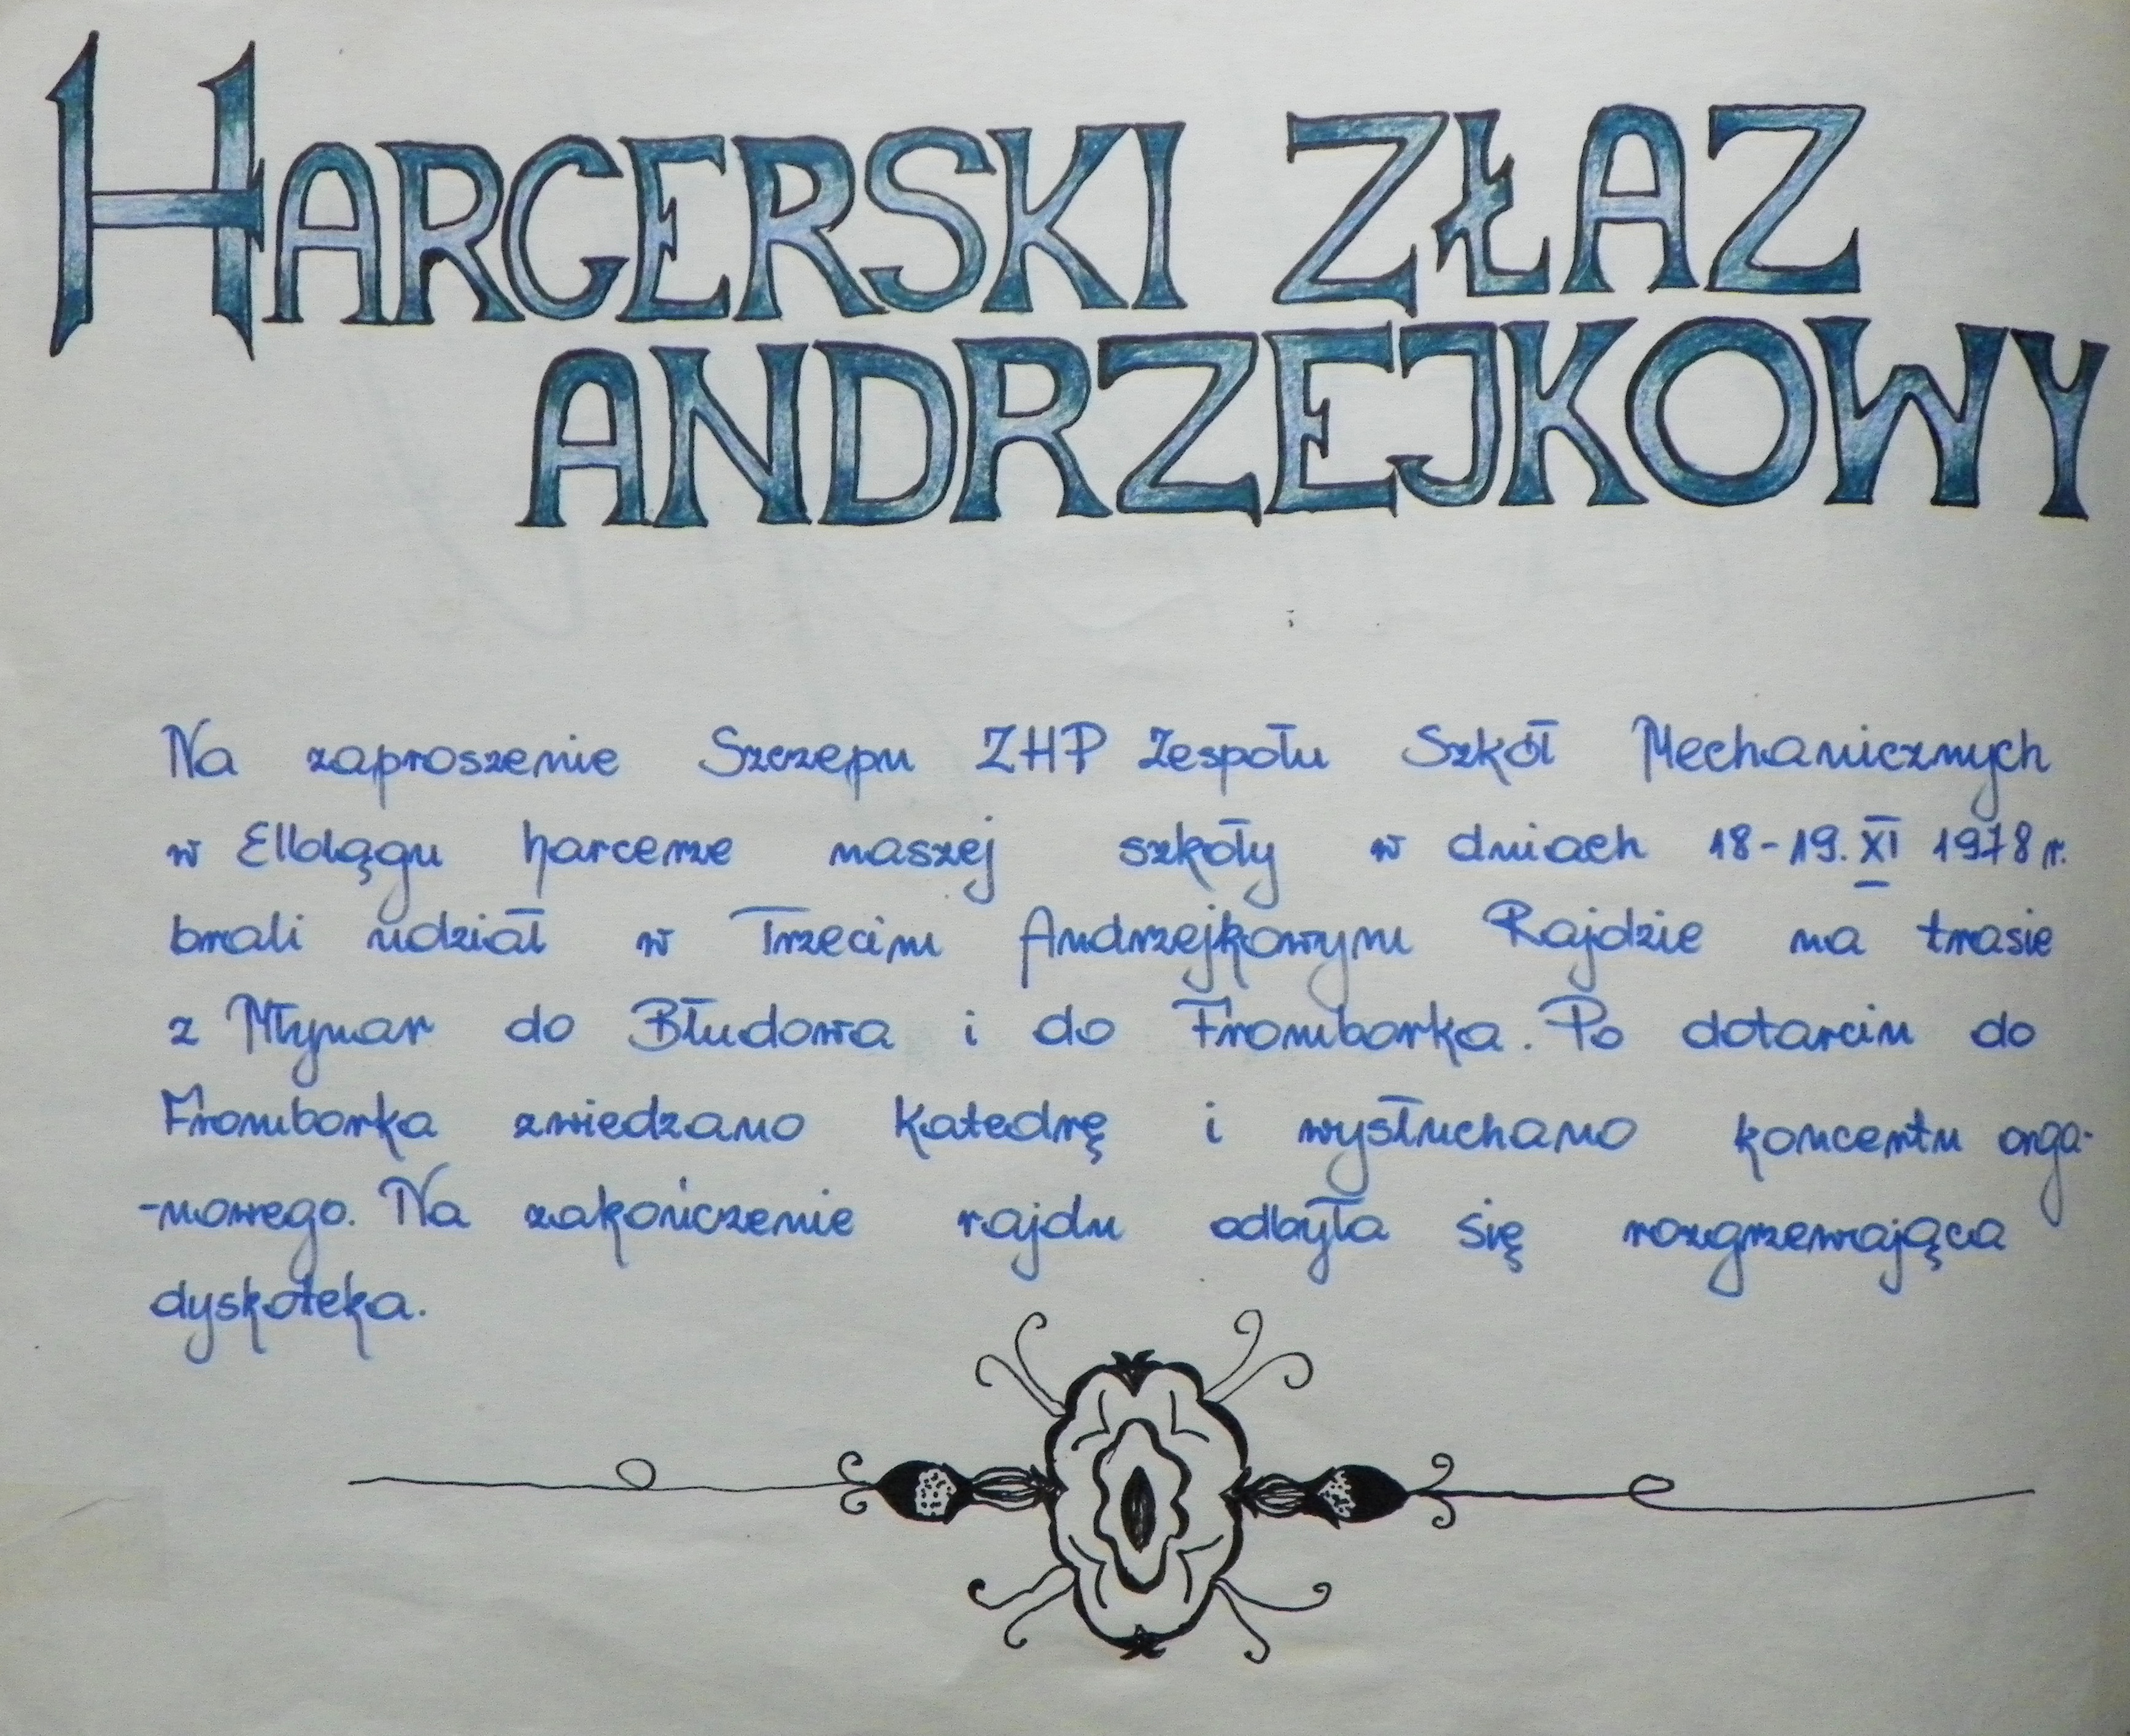 HARCERSKI ZŁAZ
ANDRZEJKOWY
Na zaproszenie Szczepu ZHP Zespołu Szkół Mechanicznych
w Elblągu harcerze naszej szkoły w dniach 18-19.XI 1978 r.
brali udział w Trzecim Andrzejkowym Rajdzie na trasie
z Młynar do Błudowa i do Fromborka. Po dotarciu do
Fromborka zwiedzano Katedrę i wysłuchano koncertu orga-
-nowego. Na zakończenie rajdu odbyła się rozgrzewająca
dyskoteka.